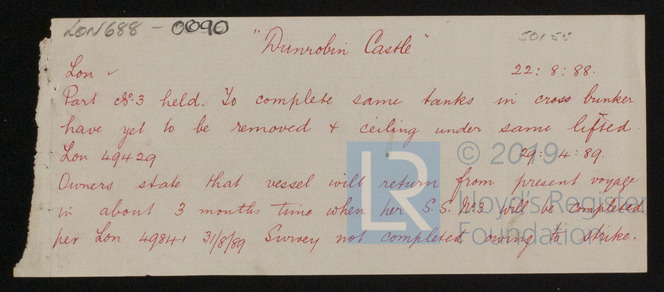 LON688 - 0090
"Dunrobin Castle"
50155
Lon
22:8:88.
Part No. 3 held. To complete same tanks in cross bunker
have yet to be removed & ceiling under same lifted.
Lon 49429
29:4:89.
Owners state that vessel will return from present voyage
in about 3 months time when her S.S. No. 3 will be completed
per Lon 49841 31/8/89 Survey not completed owing to strike.
LR
© 2019
Lloyd's Register
Foundation